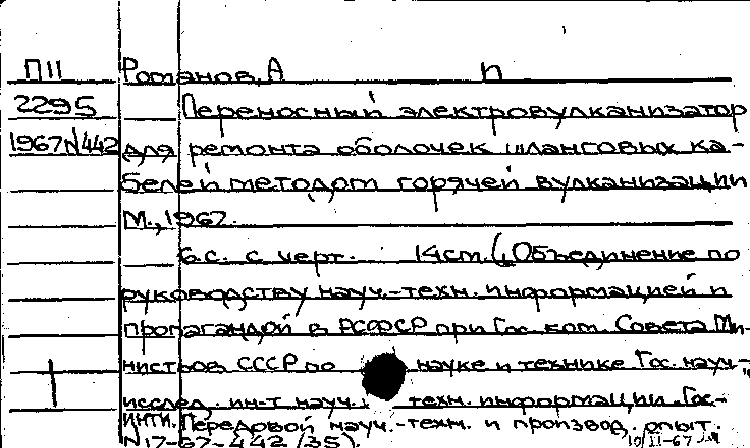 П11 Романов, А п
2295 Переносный электровулканизатор
1967№442 для ремонта оболочек шланговых ка-
белей методом горячей вулканизации
М., 1967.
6.с. с черт. 14см. („Объединение по
руководству науч.-техн. информацией и
пропагандой в РСФСР при Гос. ком. Совета Ми-
нистров СССР по науке и технике Гос. науч.-
исслед. ин-т науч. техн. информации. „Гос-
ИНТИ". Передовой науч.-техн. и производ. опыт.
№17-67-442/35).